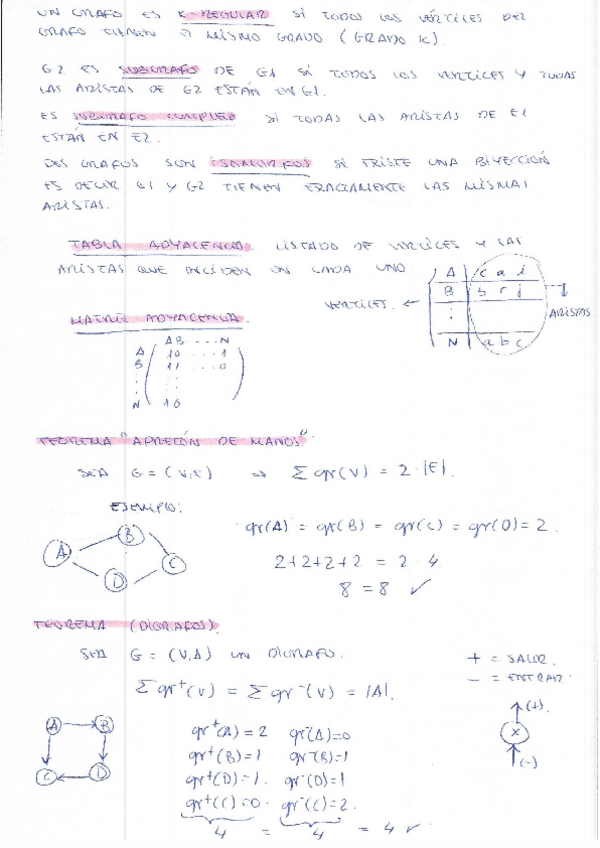 UN GRAFO ES K-REGULAR SI TODOS LOS VÉRTICES DEL
GRAFO TIENEN EL MISMO GRADO (GRADO K).
G2 ES SUBGRAFO DE G1 SI TODOS LOS VERTICES Y TODAS
LAS ARISTAS DE G2 ESTÁN EN G1.
ES SUBGRAFO COMPLETO SI TODAS LAS ARISTAS DE E1
ESTÁN EN E2.
DOS GRAFOS SON ISOMORFOS SI EXISTE UNA BIYECCIÓN
ES DECIR G1 Y G2 TIENEN EXACTAMENTE LAS MISMAS
ARISTAS.
TABLA ADYACENCIA. LISTADO DE VERTICES Y LAS
ARISTAS QUE INCIDEN EN CADA UNO.
A c a i
VERTICES. ← B b r j → ARISTAS
:
N a b c
MATRIZ ADYACENCIA.
A B ... N
A 1 0 ... 1
B 1 1 ... 0
:
N 1 0
TEOREMA "APRETÓN DE MANOS".
SEA G = (V,E) ⇒ Σ gr(V) = 2·|E|.
EJEMPLO:
A B C D
gr(A) = gr(B) = gr(C) = gr(D) = 2.
2+2+2+2 = 2·4
8 = 8 ✓
TEOREMA (DIGRAFOS).
SEA G = (V,A) UN DIGRAFO.
+ = SALIR.
− = ENTRAR.
Σ gr⁺(v) = Σ gr⁻(v) = |A|.
A B C D
gr⁺(A) = 2 gr⁻(A) = 0
gr⁺(B) = 1 gr⁻(B) = 1
gr⁺(D) = 1. gr⁻(D) = 1
gr⁺(C) = 0. gr⁻(C) = 2.
4 = 4 = 4 ✓
(+).
X
(-)